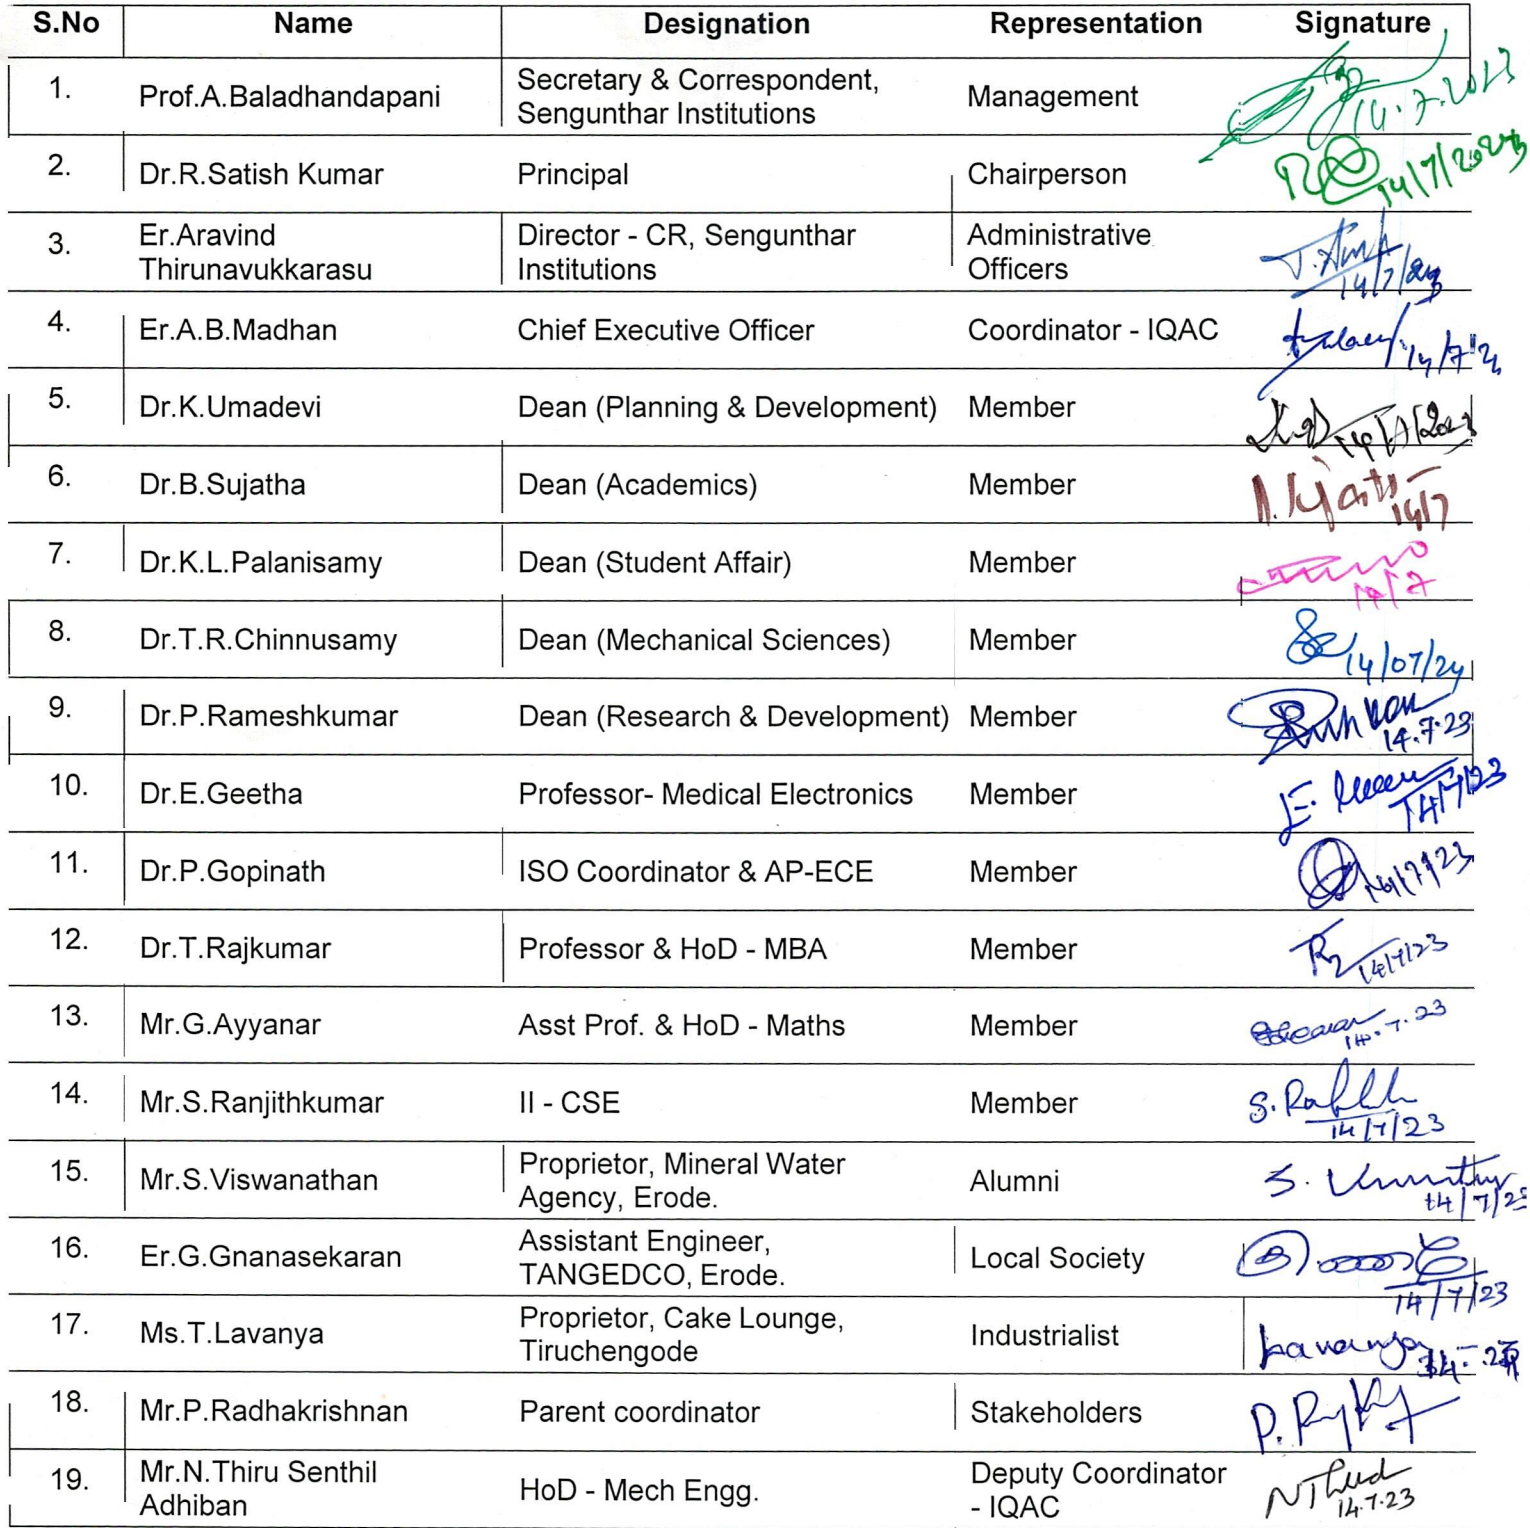 S.No Name Designation Representation Signature
1. Prof.A.Baladhandapani Secretary & Correspondent, Management
Sengunthar Institutions
14.7.2023
2. Dr.R.Satish Kumar Principal Chairperson 14/7/2023
3. Er.Aravind Director - CR, Sengunthar Administrative
Thirunavukkarasu Institutions Officers
14/7/23
4. Er.A.B.Madhan Chief Executive Officer Coordinator - IQAC
5. Dr.K.Umadevi Dean (Planning & Development) Member
6. Dr.B.Sujatha Dean (Academics) Member
14/7
7. Dr.K.L.Palanisamy Dean (Student Affair) Member
14/7
8. Dr.T.R.Chinnusamy Dean (Mechanical Sciences) Member
14/07/24
9. Dr.P.Rameshkumar Dean (Research & Development) Member
14.7.23
10. Dr.E.Geetha Professor- Medical Electronics Member E.
14/7/23
11. Dr.P.Gopinath ISO Coordinator & AP-ECE Member 14/7/23
12. Dr.T.Rajkumar Professor & HoD - MBA Member
14/7/23
13. Mr.G.Ayyanar Asst Prof. & HoD - Maths Member
14.7.23
14. Mr.S.Ranjithkumar II - CSE Member S.
14/7/23
15. Mr.S.Viswanathan Proprietor, Mineral Water Alumni S.
Agency, Erode.
14/7/23
16. Er.G.Gnanasekaran Assistant Engineer, Local Society
TANGEDCO, Erode.
14/7/23
17. Ms.T.Lavanya Proprietor, Cake Lounge, Industrialist Lavanya
Tiruchengode
18. Mr.P.Radhakrishnan Parent coordinator Stakeholders P.
19. Mr.N.Thiru Senthil HoD - Mech Engg. Deputy Coordinator
Adhiban - IQAC
14.7.23